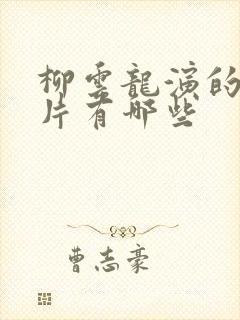 柳雲龍演的
片有哪些
曹志豪